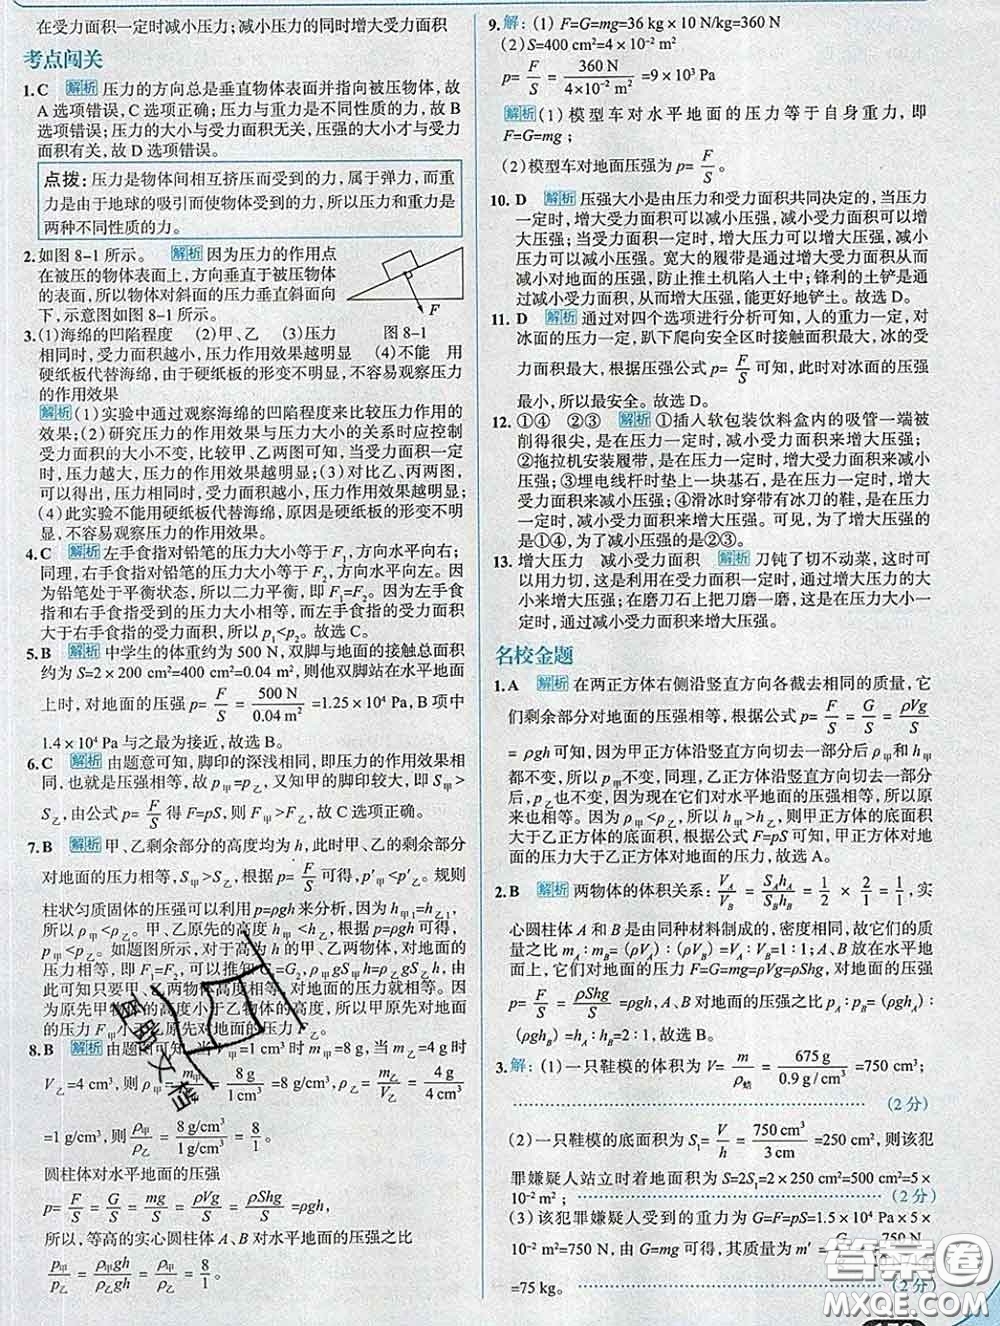 在受力面积一定时减小压力;减小压力的同时增大受力面积
考点闯关
1.C 解析 压力的方向总是垂直物体表面并指向被压物体,故
A选项错误,C选项正确;压力与重力是不同性质的力,故B
选项错误;压力的大小与受力面积无关,压强的大小才与受力
面积有关,故D选项错误。
点拨:压力是物体间相互挤压而受到的力,属于弹力,而重
力是由于地球的吸引而使物体受到的力,所以压力和重力是
两种不同性质的力。
2.如图8-1所示。 解析 因为压力的作用点
在被压的物体表面上,方向垂直于被压物体
的表面,所以物体对斜面的压力垂直斜面向
下,示意图如图8-1所示。
F
图8-1
3.(1)海绵的凹陷程度 (2)甲、乙 (3)压力
相同时,受力面积越小,压力作用效果越明显 (4)不能 用
硬纸板代替海绵,由于硬纸板的形变不明显,不容易观察压力
的作用效果
解析 (1)实验中通过观察海绵的凹陷程度来比较压力作用的
效果;(2)研究压力的作用效果与压力大小的关系时应控制
受力面积的大小不变,比较甲、乙两图可知,当受力面积一定
时,压力越大,压力作用效果越明显;(3)对比乙、丙两图,
可以得出,压力相同时,受力面积越小,压力作用效果越明显;
(4)此实验不能用硬纸板代替海绵,原因是硬纸板的形变不明
显,不容易观察压力的作用效果。
4.C 解析 左手食指对铅笔的压力大小等于F₁,方向水平向右;
同理,右手食指对铅笔的压力大小等于F₂,方向水平向左。因
为铅笔处于平衡状态,所以二力平衡,即F₁=F₂。因为左手食
指和右手食指受到的压力大小相等,而左手食指的受力面积
大于右手食指的受力面积,所以p₁<p₂。故选C。
5.B 解析 中学生的体重约为500 N,双脚与地面的接触总面积
约为S=2×200 cm²=400 cm²=0.04 m²,则他双脚站在水平地面
上时,对地面的压强p=F/S=500 N/0.04 m²=1.25×10⁴ Pa,B项中
1.4×10⁴ Pa与之最为接近,故选B。
6.C 解析 由题意可知,脚印的深浅相同,即压力的作用效果相
同,也就是压强相等,故p甲=p乙,又知甲的脚印较大,即S甲>
S乙,由公式p=F/S得F=pS,则F甲>F乙,故C选项正确。
7.B 解析 甲、乙剩余部分的高度均为h,此时甲、乙的剩余部分
对地面的压力相等,S甲>S乙,根据p=F/S可得,p′甲<p′乙。规则
柱状匀质固体的压强可以利用p=ρgh来分析,因为h甲1=h乙1,
所以ρ甲<ρ乙。甲、乙原先的高度h甲<h乙,根据p=ρgh可得,
p甲<p乙。如题图所示,对于高为h的甲、乙两物体,对地面的
压力相等,即F₁=F₂,可以推知G₁=G₂,ρ甲gS甲h=ρ乙gS乙h,由
此可知只要甲、乙两物体高度相等,对地面的压力就相等。因
为原先甲物体的高度小于乙物体的高度,所以甲原先对地面
的压力F甲小于乙原先对地面的压力F乙。
8.B 解析 由题图可知,当V甲=1 cm³时m甲=8 g,当m乙=4 g时
V乙=4 cm³,则ρ甲=m甲/V甲=8 g/1 cm³=8 g/cm³,ρ乙=m乙/V乙=4 g/4 cm³
=1 g/cm³,则ρ甲/ρ乙=8 g/cm³/1 g/cm³=8/1。
圆柱体对水平地面的压强
p=F/S=G/S=mg/S=ρVg/S=ρShg/S=ρgh,
所以,等高的实心圆柱体A、B对水平地面的压强之比
p甲/p乙=ρ甲gh/ρ乙gh=ρ甲/ρ乙=8/1。
9.解:(1)F=G=mg=36 kg×10 N/kg=360 N
(2)S=400 cm²=4×10⁻² m²
p=F/S=360 N/4×10⁻² m²=9×10³ Pa
解析 (1)模型车对水平地面的压力等于自身重力,即
F=G=mg;
(2)模型车对地面压强为p=F/S。
10. D 解析 压强大小是由压力和受力面积共同决定的,当压力
一定时,增大受力面积可以减小压强,减小受力面积可以增大
压强;当受力面积一定时,增大压力可以增大压强,减小
压力可以减小压强。宽大的履带是通过增大受力面积从而减
小对地面的压强,防止推土机陷入土中;锋利的土铲是通
过减小受力面积,从而增大压强,能更好地铲土。故选D。
11. D 解析 通过对四个选项进行分析可知,人的重力一定,对
冰面的压力一定,趴下爬向安全区时接触面积最大,受力面
积最大,根据压强公式p=F/S可知,此时对冰面的压强
最小,所以最安全。故选D。
12. ①④ ②③ 解析 ①插入软包装饮料盒内的吸管一端被
削得很尖,是在压力一定时,减小受力面积来增大压强;
②拖拉机安装履带,是在压力一定时,增大受力面积来减小
压强;③埋电线杆时垫上一块基石,是在压力一定时,增大
受力面积来减小压强;④滑冰时穿带有冰刀的鞋,是在压力
一定时,减小受力面积来增大压强。可见,为了增大压强的
是①④,为了减小压强的是②③。
13. 增大压力 减小受力面积 解析 刀钝了切不动菜,这时可
以用力切,这是利用在受力面积一定时,增大压力的大
小来增大压强;在磨刀石上把刀磨一磨,这是在压力大小一
定时,通过减小受力面积来增大压强。
名校金题
1.A 解析 在两正方体右侧沿竖直方向各截去相同的质量,它
们剩余部分对地面的压强相等,根据公式p=F/S=G/S=ρVg/S
=ρgh可知,因为甲正方体沿竖直方向切去一部分后ρ甲和h甲
都不变,所以p甲不变,同理,乙正方体沿竖直方向切去一部分
后,p乙也不变,因为现在它们对水平地面的压强相等,所以原
来也相等。因为ρ甲<ρ乙,所以h甲>h乙,则甲正方体的底面积
大于乙正方体的底面积,根据公式F=pS可知,甲正方体对地面
的压力大于乙正方体对地面的压力,故选A。
2.B 解析 两物体的体积关系:V_A/V_B=S_Ah_A/S_Bh_B=1/2×2/1=1/1,实
心圆柱体A和B是由同种材料制成的,密度相同,故它们的质
量之比m_A:m_B=(ρV_A):(ρV_B)=V_A:V_B=1:1;A、B放在水平地
面上,它们对地面的压力F=G=mg=ρVg=ρShg,对地面的压强
p=F/S=ρShg/S=ρgh,A、B对地面的压强之比p_A:p_B=(ρgh_A):
(ρgh_B)=h_A:h_B=2:1,故选B。
3.解:(1)一只鞋模的体积为V=m/ρ蜡=675 g/0.9 g/cm³=750 cm³;
(2分)
(2)一只鞋模的底面积为S₁=V/h=750 cm³/3 cm=250 cm²,则该犯
罪嫌疑人站立时着地面积为S=2S₁=2×250 cm²=500 cm²=5×
10⁻² m²; (2分)
(3)该犯罪嫌疑人受到的重力为G=F=pS=1.5×10⁴ Pa×5×
10⁻² m²=750 N,由G=mg可得,其质量为m′=G/g=750 N
=75 kg。 (2分)
答案圈
MXQE.COM